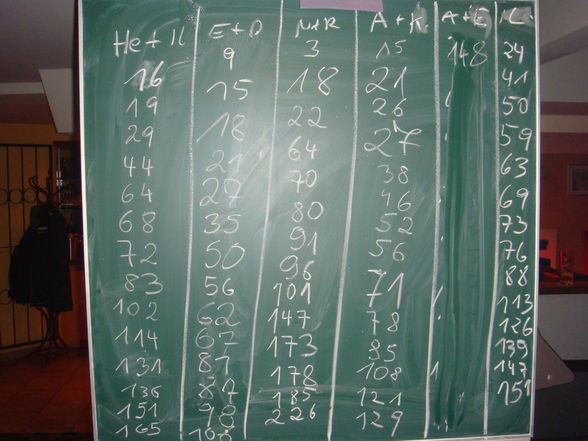 He+IL E+D M+R A+K A+E IL
16 9 3 15 148 24
19 15 18 21 41
29 18 22 26 50
44 21 64 27 59
64 27 70 38 63
68 35 80 46 69
72 50 91 52 73
83 56 96 56 76
102 62 101 71 88
114 67 147 78 113
131 81 173 95 126
136 87 178 108 139
151 98 185 121 147
165 108 226 129 151